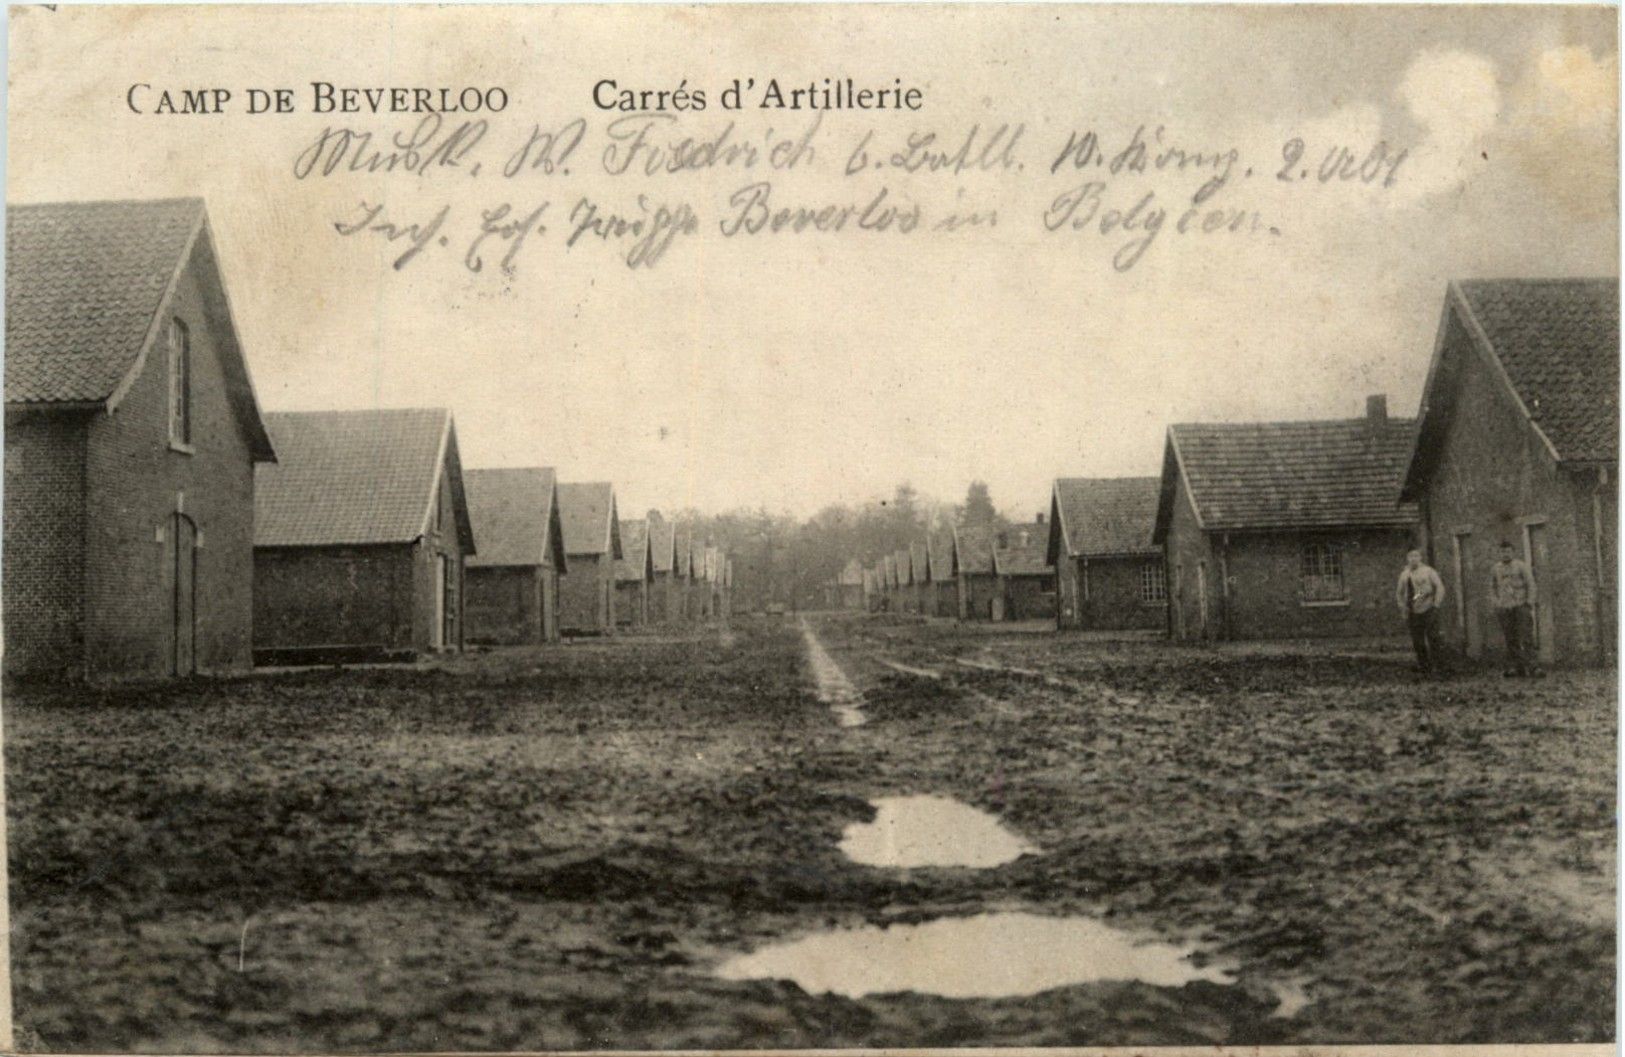 CAMP DE BEVERLOO Carrés d'Artillerie
Musk. W. Friedrich 6. Batll. 10. Komp. 2. Abt
Inf. Ers. Truppe Beverloo in Belgien.